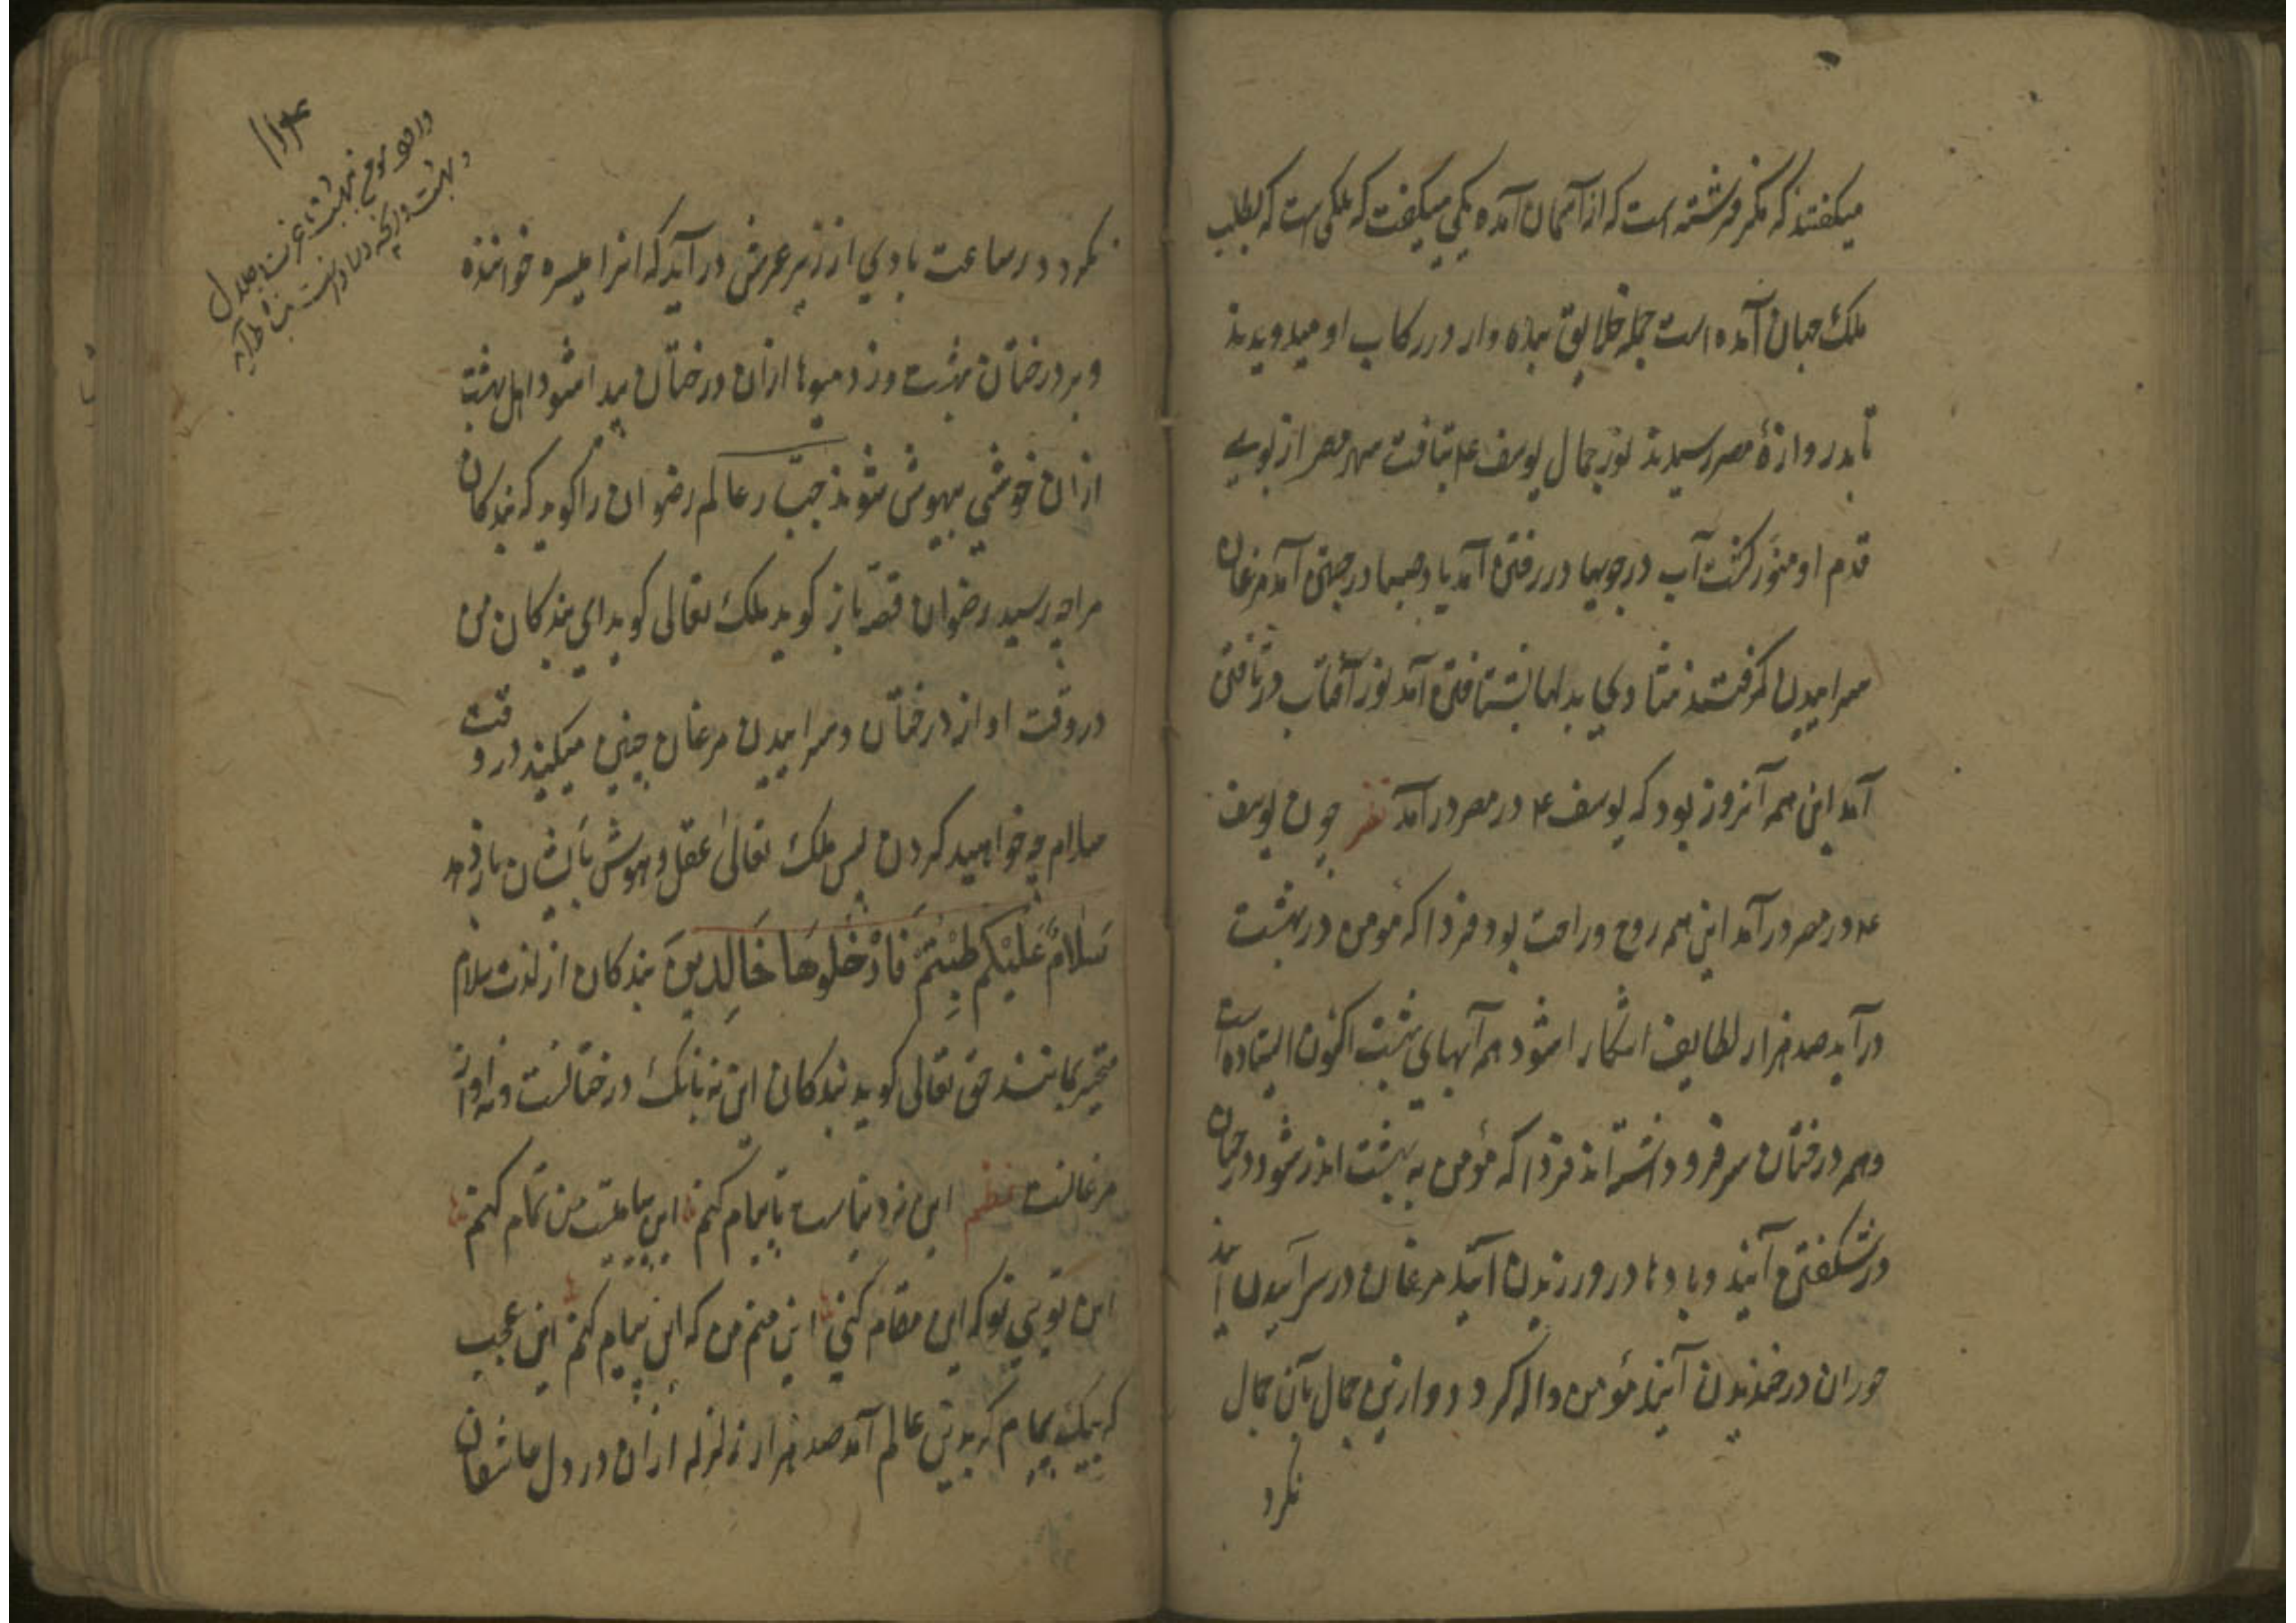 میکفتند که مکر فرشته است که از آسمان آمده یکی میکفت که ملکی است که بطلب
ملک جهان آمده است جمله خلایق بنده وار در رکاب او میدویدند
تا بدروازهٔ مصر رسیدند نور جمال یوسف ع بتافت مصر از
قدم او منور کشت آب در جویها در رفتن آمد باد صبا در جستن آمد مرغان
سراییدن کرفتند شادی بدلها بشتافتن آمد نور آفتاب در تافتن
آمد این همه آنروز بود که یوسف ع در مصر درآمد نظر چون یوسف
ع در مصر درآمد این همه روح و راحت بود فردا که مؤمن در بهشت
درآید صد هزار لطایف اشکارا شود همه آبهای بهشت اکنون ایستاده است
و همه درختان سر فرو داشته اند فردا که مؤمن به بهشت اندر شود درختان
در شکفتن آیند و بادها در وزیدن آیند مرغان در سراییدن آیند
حوران در خندیدن آیند مؤمن واله کردد و از این جمال بآن جمال
نکرد
نکرد در ساعت بادی از زیر عرش درآید که انرا میسره خوانند
و بر درختان بهشت وزد میوها ازان درختان پیدا شود اهل بهشت
ازان خوشی بیهوش شوند جبار عالم رضوان را کوید که بندکان
مرا چه رسید رضوان قصه باز کوید ملک تعالی کوید ای بندکان من
در وقت اواز درختان و سراییدن مرغان چنین میکنید در وقت
سلام چه خواهید کردن پس ملک تعالی عقل و هوش بایشان باز دهد
سَلَامٌ عَلَيْكُمْ طِبْتُمْ فَادْخُلُوهَا خَالِدِينَ بندکان از لذت سلام
متحیر بمانند حق تعالی کوید بندکان این نه بانک درختانست و نه اواز
مرغانست نظم این نه دنیاست تا پیام کنم این من تمام کنم
این تویی تو که این مقام کنی این منم من که این پیام کنم این عجب
که یک پیام عالم آمد صد هزار زلزله ازان در دل عاشقان